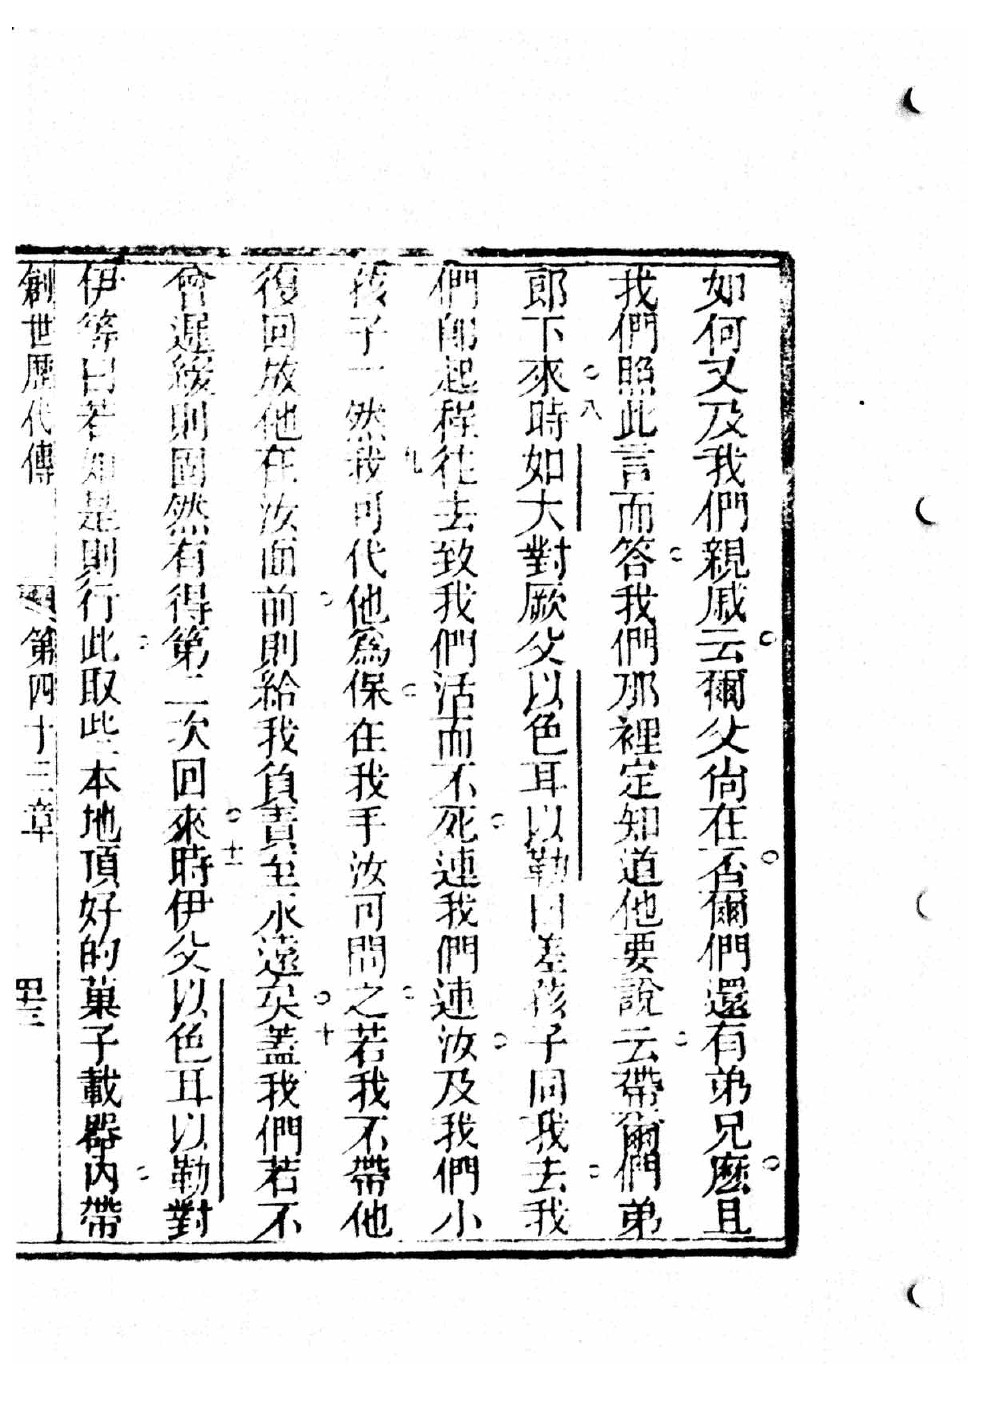 如何又及我們親戚云爾父尙在否爾們還有弟兄麽且
我們照此言而答我們那裡定知道他要說云帶爾們弟
郎下來八時如大對厥父以色耳以勒曰差孩子同我去我
們即起程往去致我們活而不死連我們連汝及我們小
孩子一然九我可代他爲保在我手汝可問之若我不帶他
復回放他在汝面前則給我負責至永遠矣十蓋我們若不
會遲緩則固然有得第二次回來十一時伊父以色耳以勒對
伊等曰若如是則行此取些本地頂好的菓子載器內帶
創世歷代傳 第四十三章 四十三